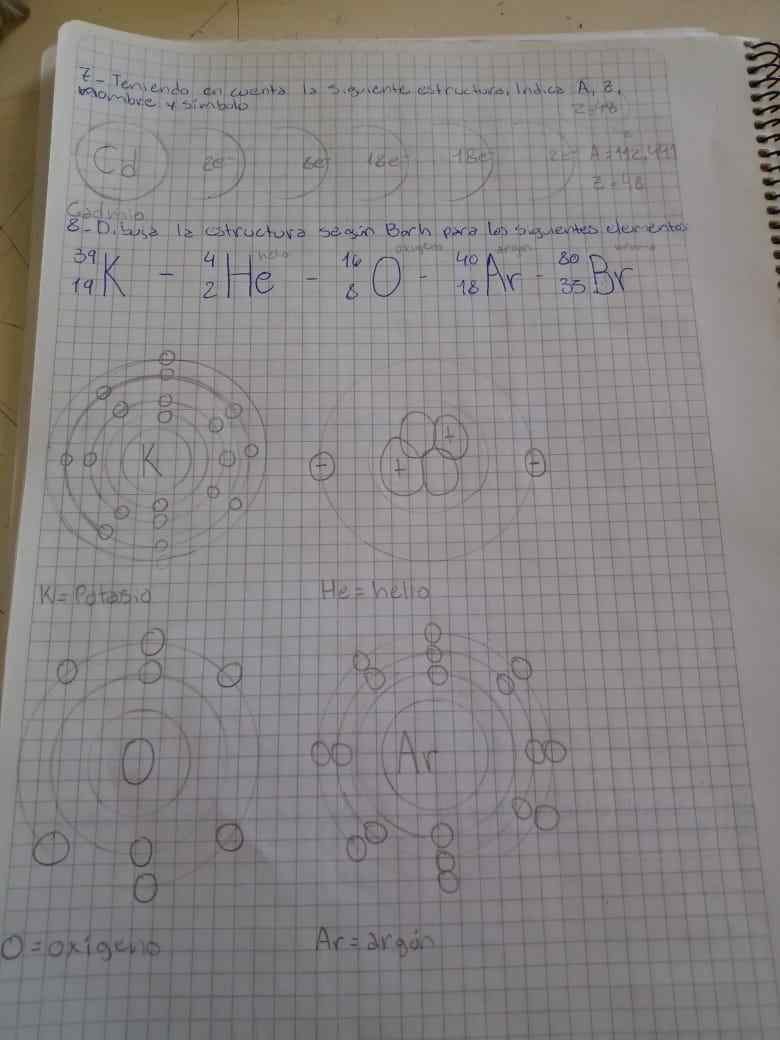 7- Teniendo en cuenta la siguiente estructura, indica A, Z,
nombre y símbolo
Z=48
Cd 2e- 8e- 18e- 18e- 2e- A=112,411
Z=48
Cadmio
8- Dibuja la estructura según Borh para los siguientes elementos
helio oxigeno argón bromo
39 19 K - 4 2 He - 16 8 O - 40 18 Ar - 80 35 Br
K
+ +
+ +
K= Potasio He= helio
O Ar
O= oxígeno Ar= argón